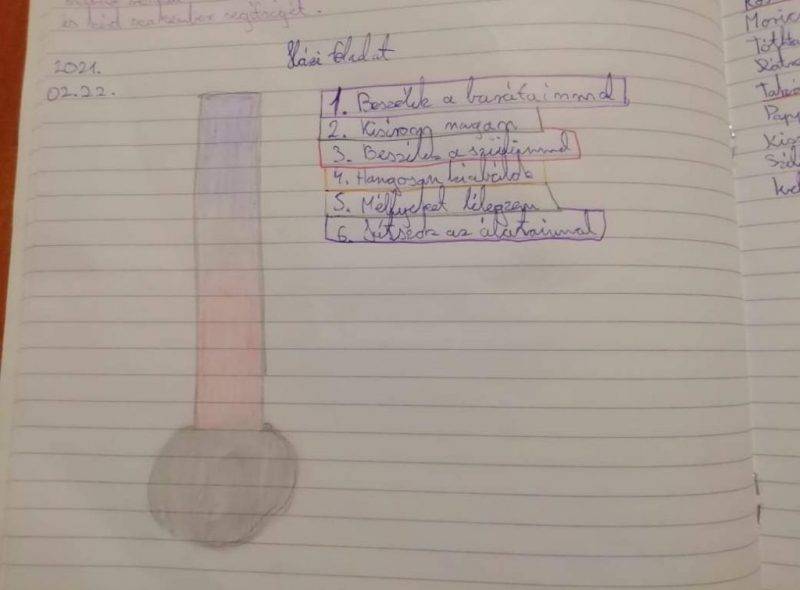 és kód szakember segítségét.
Házi feladat
2021.
02.22.
1. Beszélek a barátaimmal
2. Kisírom magam
3. Beszélek a szüleimmel
4. Hangosan kiabálok
5. Mélyeket lélegzem
6. Játszok az állataimmal
Moric
Papp
Kis